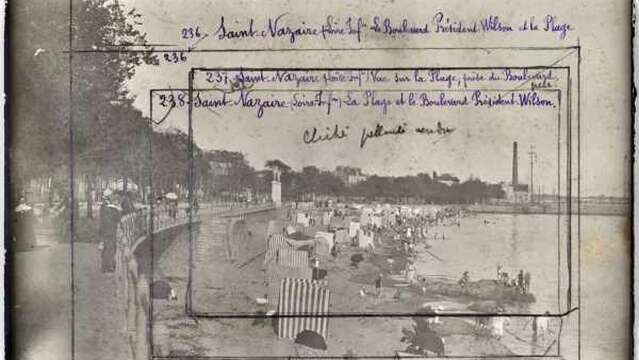 236. Saint Nazaire (Loire Infre) Le Boulevard Président Wilson et la Plage
236
237. Saint Nazaire (Loire Infre) Vue sur la Plage, prise du Boulevard
238. Saint Nazaire (Loire Infre) La Plage et le Boulevard Président Wilson.
cliché